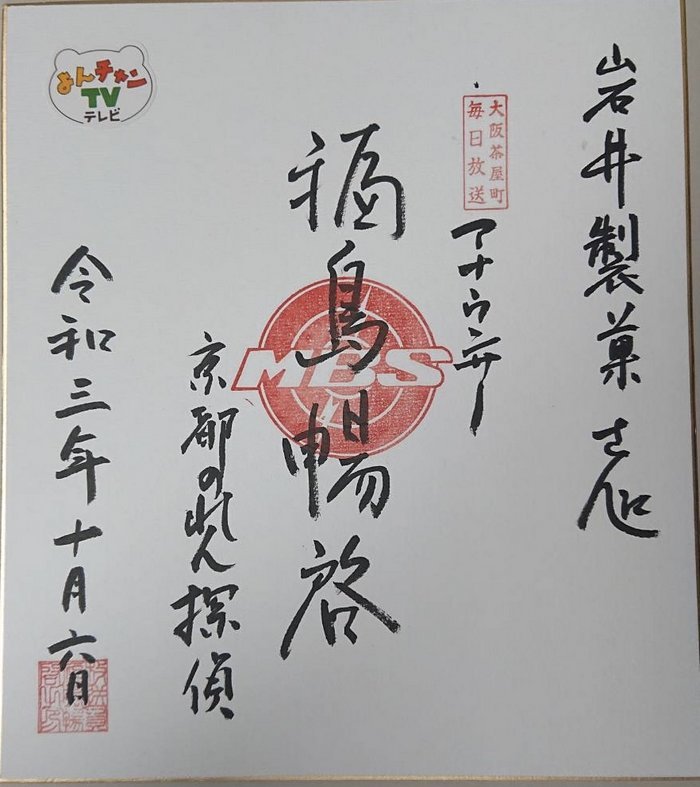 岩井製菓さん江
大阪茶屋町
毎日放送
アナウンサー
福島暢啓
MBS
京都のれん探偵
令和三年十月六日
よんチャン
TV
テレビ